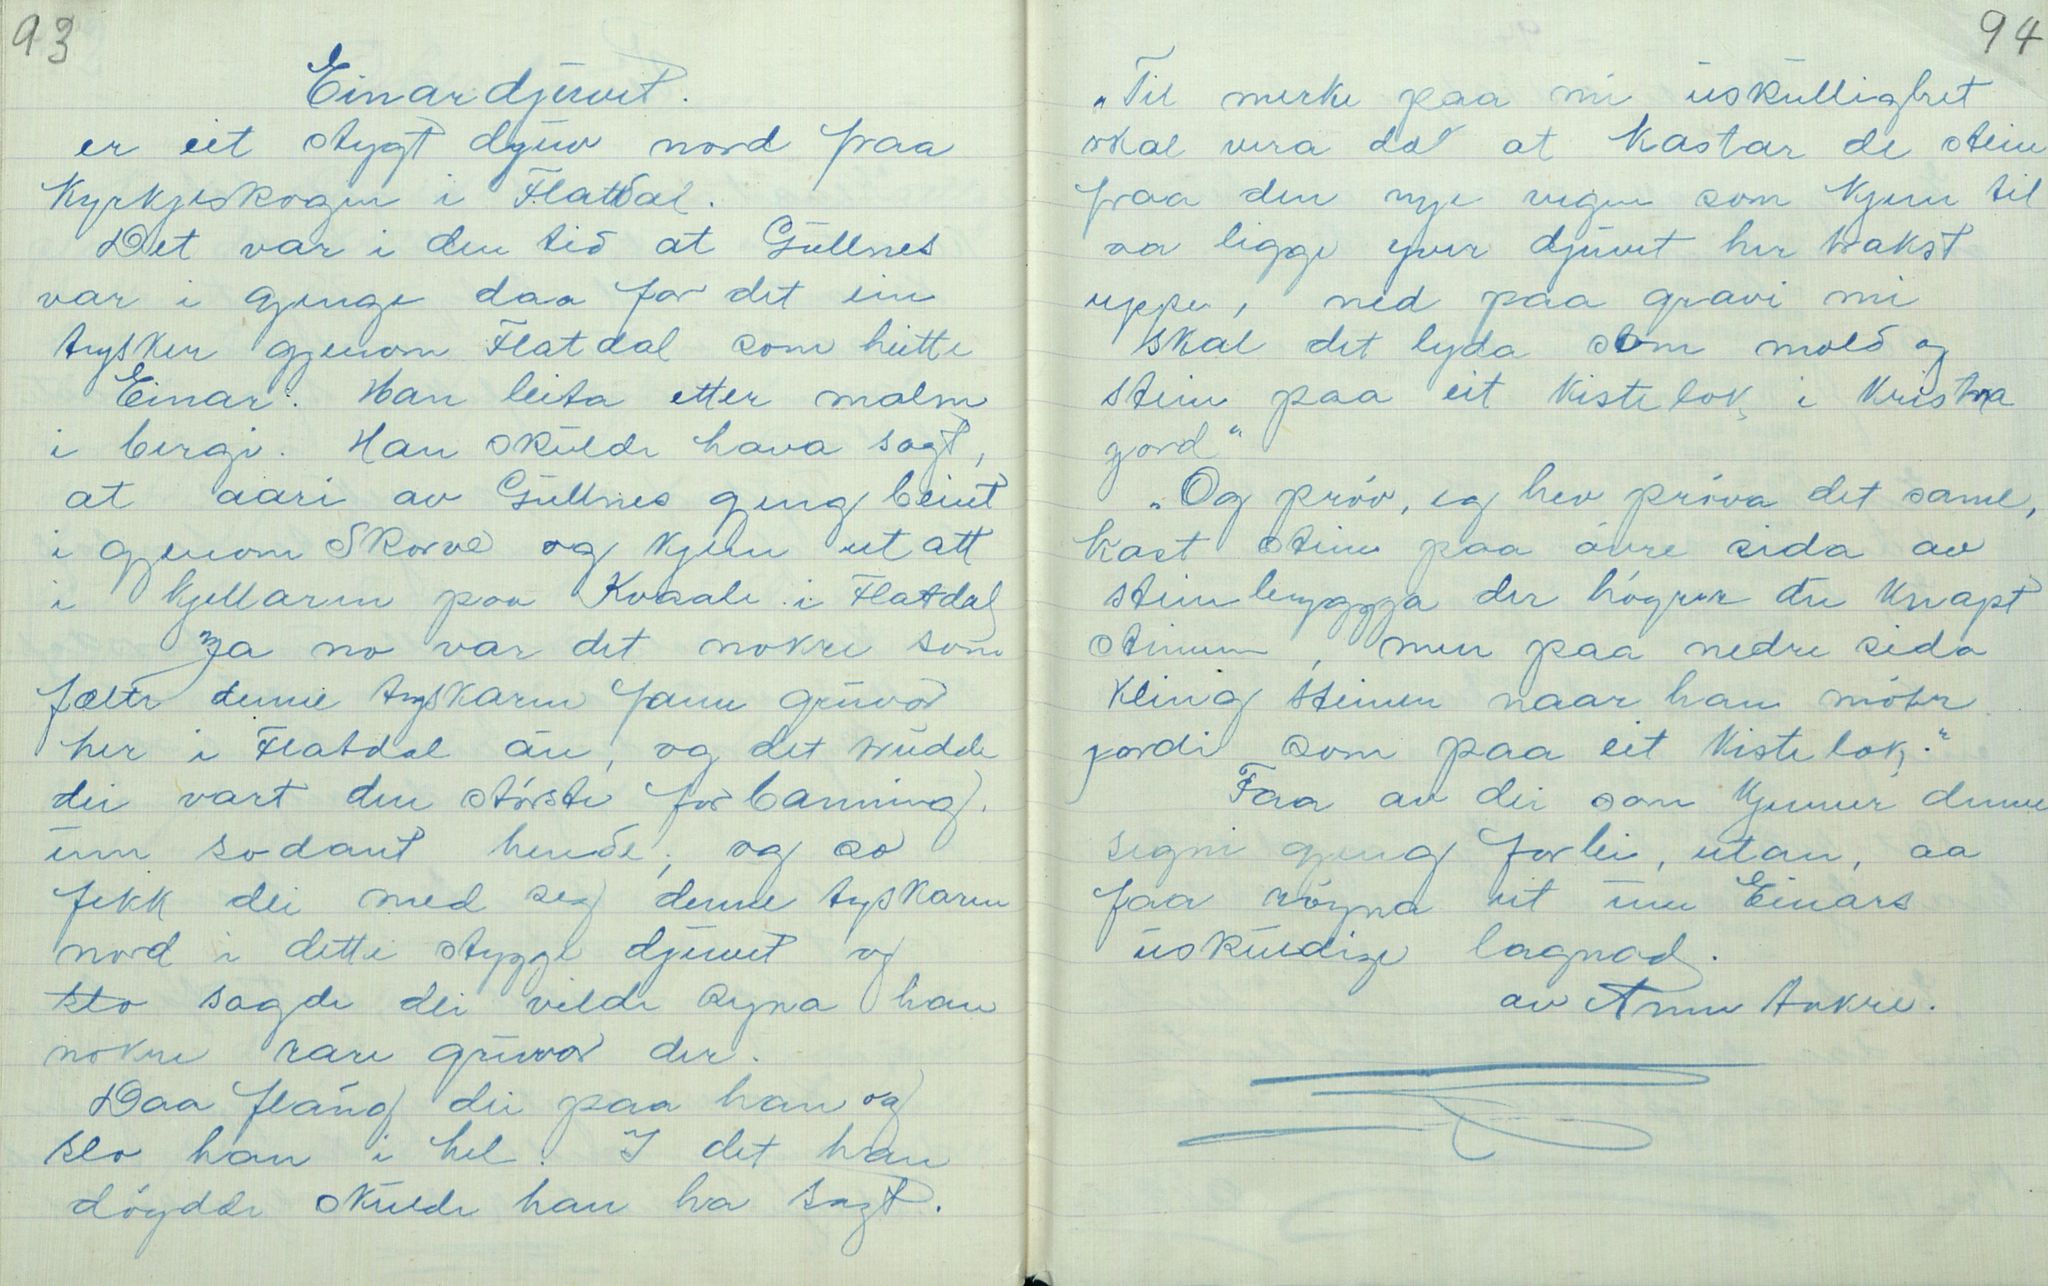 93
Einardjuvet.
er eit stygt djuv nord fraa
Kyrkjeskogen i Flatdal.
Det var i den tid at Gullnes
var i gjenge daa for det ein
tysker gjenom Flatdal som heitte
Einar. Han leita etter malm
i bergi. Han skulde hava sagt,
at aari av Gullnes gjeng beint
i gjenom Skorve og kjem ut att
i kjellaren paa Kvaale i Flatdal
Ja no var det nokre som
fælte denne tyskaren fann gruvor
her i Flatdal au, og det trudde
dei vart den störste forbanning.
um sodant hende, og so
fekk dei med seg denne tyskaren
nord i dette stygge djuvet og
sto sagde dei vilde syna han
nokre rare gruvor der.
Daa flaug dei paa han og
slo han i hel. I det han
döydde skulde han ha sagt.
94
„Til merke paa mi uskulligheit
skal vera da at kastar de stein
fraa den nye vegen som kjem til
aa ligge yver djuvet her trakst
uppe, ned paa gravi mi
skal det lyda som mold og
stein paa eit kistelok, i kristna
jord"
„Og pröv, eg hev pröva det same,
kast stein paa övre sida av
steinbryggja der höyrer du knapt
steinen, men paa nedre sida
kling steinen naar han möter
jordi som paa eit kistelok."
Faa av dei som kjenner denne
segni gjeng forbi, utan, aa
faa röyna eit um Einars
uskuldige lagnad.
av Anne Aakre.